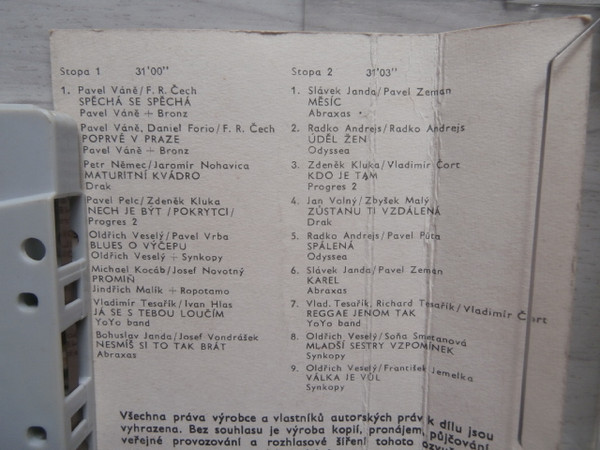 Stopa 1 31'00"
1. Pavel Váně/F. R. Čech
SPĚCHÁ SE SPĚCHÁ
Pavel Váně + Bronz
Pavel Váně, Daniel Forio/F. R. Čech
POPRVÉ V PRAZE
Pavel Váně + Bronz
Petr Němec/Jaromír Nohavica
MATURITNÍ KVÁDRO
Drak
Pavel Pelc/Zdeněk Kluka
NECH JE BÝT /POKRYTCI/
Progres 2
Oldřich Veselý/Pavel Vrba
BLUES O VÝČEPU
Oldřich Veselý + Synkopy
Michael Kocáb/Josef Novotný
PROMIŇ
Jindřich Malík + Ropotamo
Vladimír Tesařík/Ivan Hlas
JÁ SE S TEBOU LOUČÍM
YoYo band
Bohuslav Janda/Josef Vondrášek
NESMÍŠ SI TO TAK BRÁT
Abraxas
Stopa 2 31'03"
1. Slávek Janda/Pavel Zeman
MĚSÍC
Abraxas
2. Radko Andrejs/Radko Andrejs
ÚDĚL ŽEN
Odyssea
3. Zdeněk Kluka/Vladimír Čort
KDO JE TAM
Progres 2
4. Jan Volný/Zbyšek Malý
ZŮSTANU TI VZDÁLENÁ
Drak
5. Radko Andrejs/Pavel Půta
SPÁLENÁ
Odyssea
6. Slávek Janda/Pavel Zeman
KAREL
Abraxas
7. Vlad. Tesařík, Richard Tesařík/Vladimír Čort
REGGAE JENOM TAK
YoYo band
8. Oldřich Veselý/Soňa Smetanová
MLADŠÍ SESTRY VZPOMÍNEK
Synkopy
9. Oldřich Veselý/František Jemelka
VÁLKA JE VŮL
Synkopy
Všechna práva výrobce a vlastníků autorských práv k dílu jsou
vyhrazena. Bez souhlasu je výroba kopií, pronájem, půjčování
veřejné provozování a rozhlasové šíření tohoto